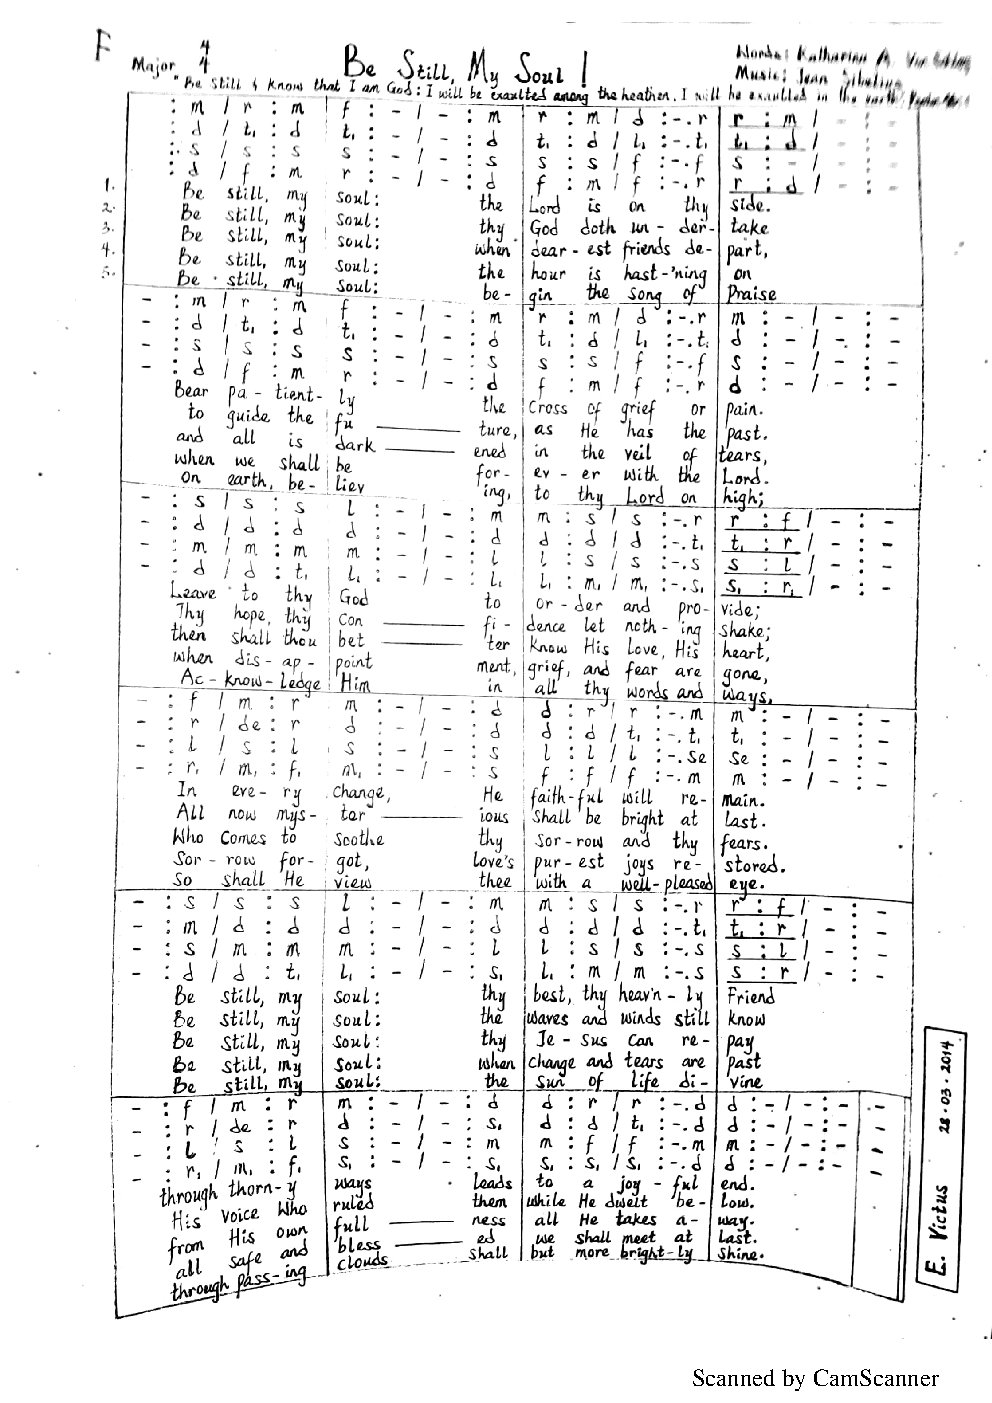 F
Major 4/4 Be Still, My Soul! Words: Katharina A.
Music: Jean Sibelius
"Be Still & Know that I am God: I will be exaulted among the heathen. I will be exaulted in the earth"
: m / r : m f : - / - : m r : m / d : -. r r : m / - : -
: d / t₁ : d t₁ : - / - : d t₁ : d / l₁ : -. t₁ t₁ : d / - : -
: s / s : s s : - / - : s s : s / f : -. f s : - / - : -
: d / f : m r : - / - : d f : m / f : -. r r : d / - : -
1. Be still, my soul: the Lord is on thy side.
2. Be still, my soul: thy God doth un - der- take
3. Be still, my soul: when dear - est friends de- part,
4. Be still, my soul: the hour is hast-'ning on
5. Be still, my soul: be- gin the song of Praise
- : m / r : m f : - / - : m r : m / d : -. r m : - / - : -
- : d / t₁ : d t₁ : - / - : d t₁ : d / l₁ : -. t₁ d : - / - : -
- : s / s : s s : - / - : s s : s / f : -. f s : - / - : -
- : d / f : m r : - / - : d f : m / f : -. r d : - / - : -
Bear pa - tient- ly the cross of grief or pain.
to guide the fu ture, as He has the past.
and all is dark ened in the veil of tears,
when we shall be for- ev - er with the Lord.
On earth, be- liev ing, to thy Lord on high;
- : s / s : s l : - / - : m m : s / s : -. r r : f / - : -
- : d / d : d d : - / - : d d : d / d : -. t₁ t₁ : r / - : -
- : m / m : m m : - / - : l l : s / s : -. s s : l / - : -
- : d / d : t₁ l₁ : - / - : l₁ l₁ : m₁ / m₁ : -. s₁ s₁ : r₁ / - : -
Leave to thy God to or - der and pro- vide;
Thy hope, thy con fi- dence let noth - ing shake;
then shall thou bet ter know His love, His heart,
when dis- ap- point ment, grief, and fear are gone,
Ac- know- ledge Him in all thy words and ways,
- : f / m : r m : - / - : d d : r / r : -. m m : - / - : -
- : r / de : r d : - / - : d d : d / t₁ : -. t₁ t₁ : - / - : -
- : l / s : l s : - / - : s l : l / l : -. se se : - / - : -
- : r₁ / m₁ : f₁ m₁ : - / - : s f : f / f : -. m m : - / - : -
In eve- ry change, He faith-ful will re- main.
All now mys- ter ious shall be bright at last.
Who comes to soothe thy sor-row and thy fears.
Sor - row for- got, love's pur- est joys re- stored.
So shall He view thee with a well-pleased eye.
- : s / s : s l : - / - : m m : s / s : -. r r : f / - : -
- : m / d : d d : - / - : d d : d / d : -. t₁ t₁ : r / - : -
- : s / m : m m : - / - : l l : s / s : -. s s : l / - : -
- : d / d : t₁ l₁ : - / - : s₁ l₁ : m / m : -. s s : r / - : -
Be still, my soul: thy best, thy heav'n - ly Friend
Be still, my soul: the waves and winds still know
Be still, my soul: thy Je- sus can re- pay
Be still, my soul: when change and tears are past
Be still, my soul: the sun of life di- vine
- : f / m : r m : - / - : d d : r / r : -. d d : - / - : - -
- : r / de : r d : - / - : s₁ d : d / t₁ : -. d d : - / - : - -
- : l / s : l s : - / - : m m : f / f : -. m m : - / - : - -
- : r₁ / m₁ : f₁ s₁ : - / - : s₁ s₁ : s₁ / s₁ : -. d d : - / - : - -
through thorn-y ways leads to a joy - ful end.
His voice Who ruled them while He dwelt be- low.
from His own full ness all He takes a- way.
all safe and bless ed we shall meet at last.
through pass-ing clouds shall but more bright-ly shine.
E. Victus 28.03.2014
Scanned by CamScanner